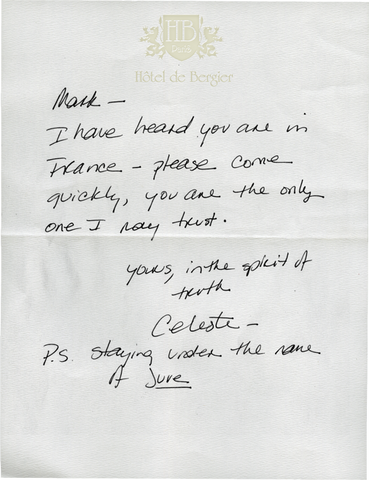 HB
Hôtel de Bergier
Mark –
I have heard you are in
France – please come
quickly, you are the only
one I may trust.
yours, in the spirit of
truth
Celeste –
P.S. staying under the name
of Juve